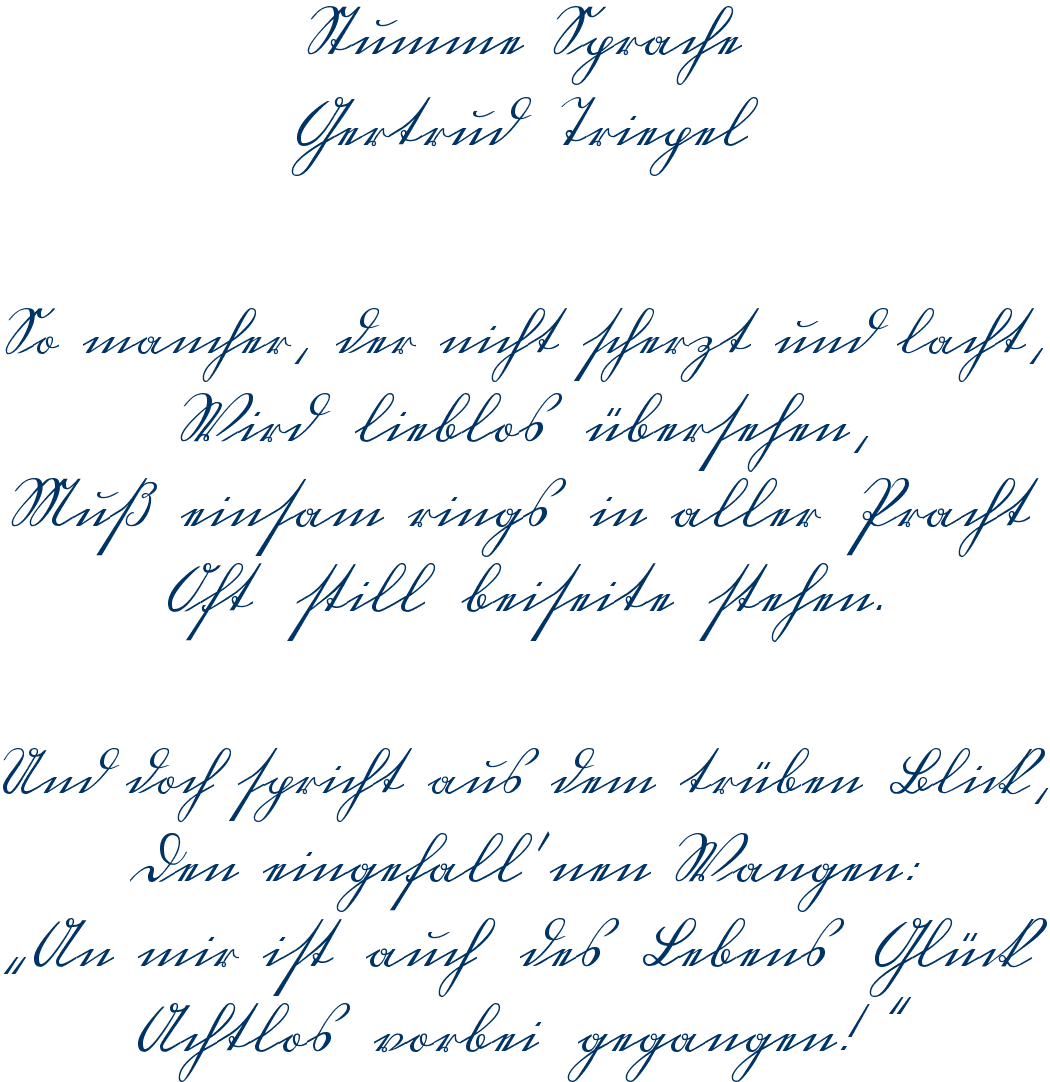 Stumme Sprache
Gertrud Triepel
So mancher, der nicht scherzt und lacht,
Wird lieblos übersehen,
Muß einsam rings in aller Pracht
Oft still beiseite stehen.
Und doch spricht aus dem trüben Blick,
Den eingefall'nen Wangen:
„An mir ist auch des Lebens Glück
Achtlos vorbei gegangen!"